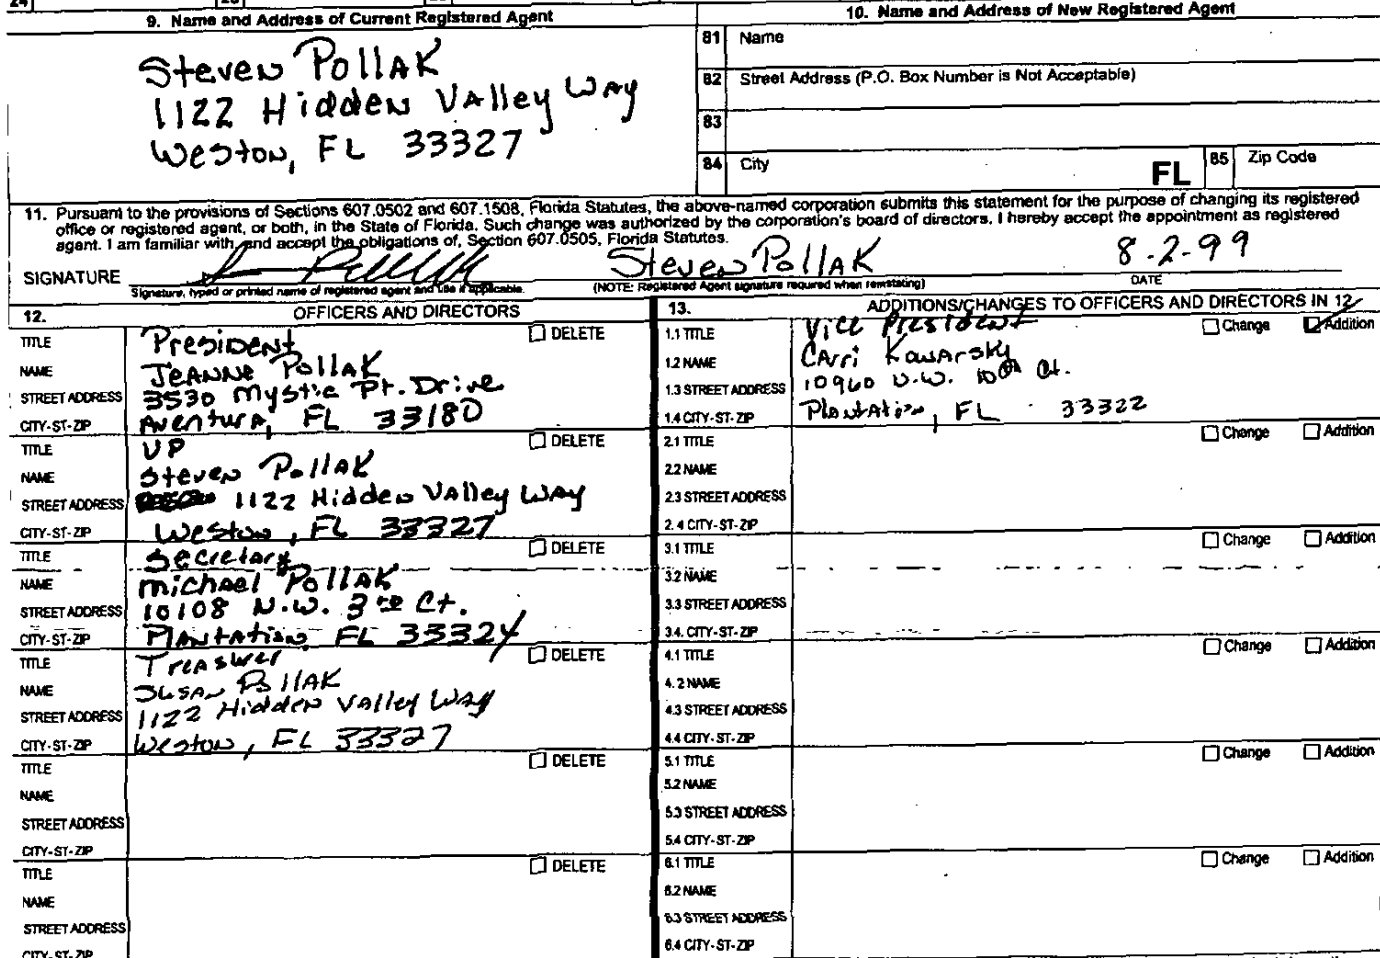 24
9. Name and Address of Current Registered Agent
Steven Pollak
1122 Hidden Valley Way
Weston, FL 33327
10. Name and Address of New Registered Agent
81 Name
82 Street Address (P.O. Box Number is Not Acceptable)
83
84 City FL 85 Zip Code
11. Pursuant to the provisions of Sections 607.0502 and 607.1508, Florida Statutes, the above-named corporation submits this statement for the purpose of changing its registered
office or registered agent, or both, in the State of Florida. Such change was authorized by the corporation's board of directors. I hereby accept the appointment as registered
agent. I am familiar with, and accept the obligations of, Section 607.0505, Florida Statutes.
SIGNATURE Steven Pollak 8-2-99
Signature, typed or printed name of registered agent and title if applicable. (NOTE: Registered Agent signature required when reinstating) DATE
12. OFFICERS AND DIRECTORS
TITLE President DELETE
NAME Jeanne Pollak
STREET ADDRESS 3530 Mystic Pt. Drive
CITY-ST-ZIP Aventura, FL 33180
TITLE VP DELETE
NAME Steven Pollak
STREET ADDRESS 1122 Hidden Valley Way
CITY-ST-ZIP Weston, FL 33327
TITLE Secretary DELETE
NAME Michael Pollak
STREET ADDRESS 10108 N.W. 3rd Ct.
CITY-ST-ZIP Plantation, FL 33324
TITLE Treasurer DELETE
NAME Susan Pollak
STREET ADDRESS 1122 Hidden Valley Way
CITY-ST-ZIP Weston, FL 33327
TITLE DELETE
NAME
STREET ADDRESS
CITY-ST-ZIP
TITLE DELETE
NAME
STREET ADDRESS
CITY-ST-ZIP
13. ADDITIONS/CHANGES TO OFFICERS AND DIRECTORS IN 12
1.1 TITLE Vice President Change Addition
1.2 NAME Carri Kowarsky
1.3 STREET ADDRESS 10960 N.W. 10th Ct.
1.4 CITY-ST-ZIP Plantation, FL 33322
2.1 TITLE Change Addition
2.2 NAME
2.3 STREET ADDRESS
2.4 CITY-ST-ZIP
3.1 TITLE Change Addition
3.2 NAME
3.3 STREET ADDRESS
3.4. CITY-ST-ZIP
4.1 TITLE Change Addition
4.2 NAME
4.3 STREET ADDRESS
4.4 CITY-ST-ZIP
5.1 TITLE Change Addition
5.2 NAME
5.3 STREET ADDRESS
5.4 CITY-ST-ZIP
6.1 TITLE Change Addition
6.2 NAME
6.3 STREET ADDRESS
6.4 CITY-ST-ZIP